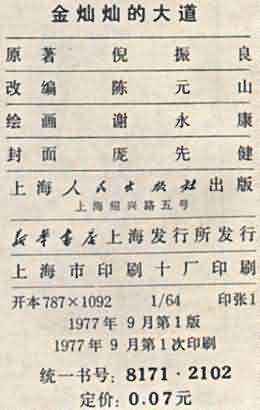 金灿灿的大道
原著 倪振良
改编 陈元山
绘画 谢永康
封面 庞先健
上海人民出版社出版
上海绍兴路五号
新华书店上海发行所发行
上海市印刷十厂印刷
开本787×1092 1/64 印张1
1977年9月第1版
1977年9月第1次印刷
统一书号：8171·2102
定价：0.07元